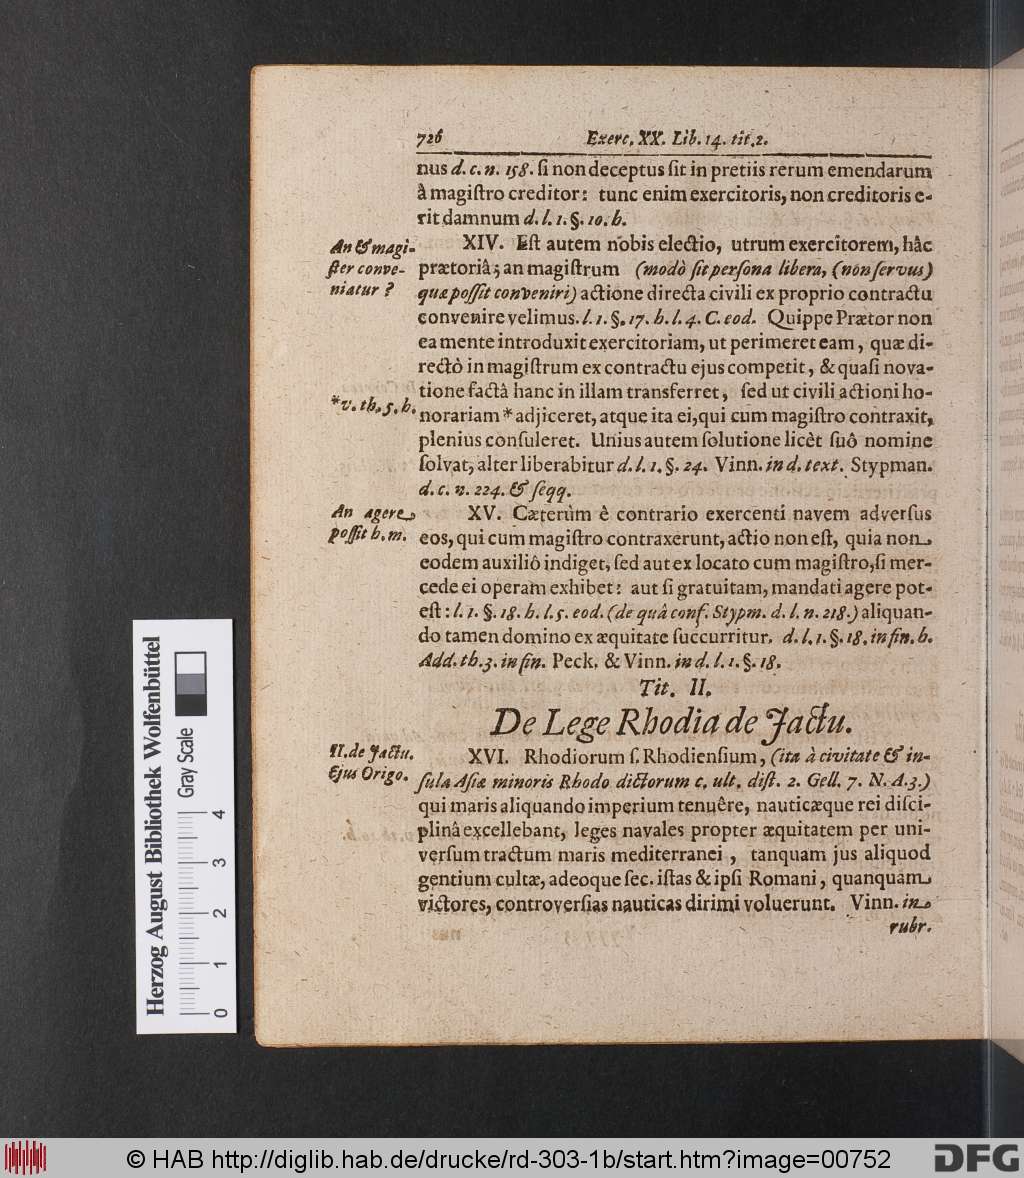 726 Exerc. XX. Lib. 14. tit. 2.
nus d. c. n. 158. ſi non deceptus ſit in pretiis rerum emendarum
â magiſtro creditor: tunc enim exercitoris, non creditoris e-
rit damnum d. l. 1. §. 10. h.
An & magi-
ſter conve-
niatur ?
XIV. Eſt autem nobis electio, utrum exercitorem, hâc
prætoriâ; an magiſtrum (modò ſit perſona libera, (non ſervus)
quæ poſſit conveniri) actione directa civili ex proprio contractu
convenire velimus. l. 1. §. 17. h. l. 4. C. eod. Quippe Prætor non
ea mente introduxit exercitoriam, ut perimeret eam, quæ di-
rectò in magiſtrum ex contractu ejus competit, & quaſi nova-
tione factâ hanc in illam transferret, ſed ut civili actioni ho-
*v. th. 5. h.
norariam * adjiceret, atque ita ei, qui cum magiſtro contraxit,
plenius conſuleret. Unius autem ſolutione licèt ſuô nomine
ſolvat, alter liberabitur d. l. 1. §. 24. Vinn. in d. text. Stypman.
d. c. n. 224. & ſeqq.
An agere
poſſit h. m.
XV. Cæterùm è contrario exercenti navem adverſus
eos, qui cum magiſtro contraxerunt, actio non eſt, quia non
eodem auxiliô indiget, ſed aut ex locato cum magiſtro, ſi mer-
cede ei operam exhibet: aut ſi gratuitam, mandati agere pot-
eſt: l. 1. §. 18. h. l. 5. eod. (de quâ conf. Stypm. d. l. n. 218.) aliquan-
do tamen domino ex æquitate ſuccurritur. d. l. 1. §. 18. in fin. h.
Add. th. 3. in fin. Peck. & Vinn. in d. l. 1. §. 18.
Tit. II.
De Lege Rhodia de Jactu.
II. de Jactu.
Ejus Origo.
XVI. Rhodiorum ſ. Rhodienſium, (ita à civitate & in-
ſula Aſiæ minoris Rhodo dictorum c. ult. diſt. 2. Gell. 7. N. A. 3.)
qui maris aliquando imperium tenuêre, nauticæque rei diſci-
plinâ excellebant, leges navales propter æquitatem per uni-
verſum tractum maris mediterranei, tanquam jus aliquod
gentium cultæ, adeoque ſec. iſtas & ipſi Romani, quanquam
victores, controverſias nauticas dirimi voluerunt. Vinn. in
rubr.
Herzog August Bibliothek Wolfenbüttel
Gray Scale
0 1 2 3 4
© HAB http://diglib.hab.de/drucke/rd-303-1b/start.htm?image=00752
DFG